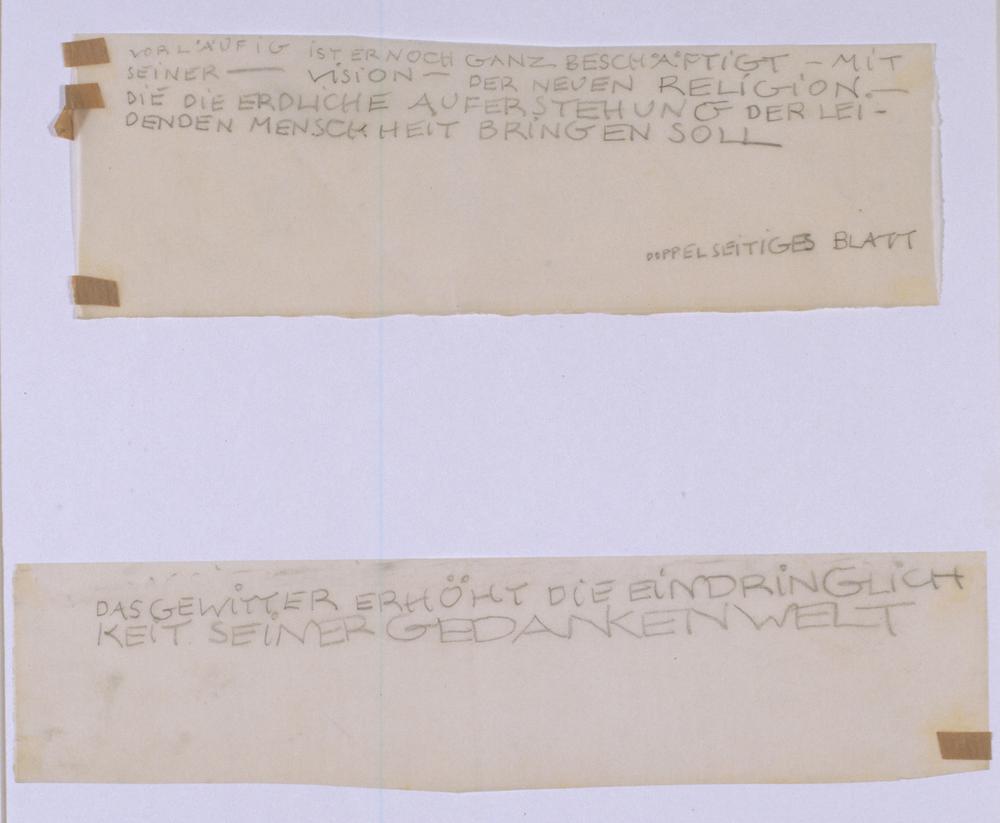 VORLÄUFIG IST ER NOCH GANZ BESCHÄFTIGT – MIT
SEINER — VISION – DER NEUEN RELIGION.—
DIE DIE ERDLICHE AUFERSTEHUNG DER LEI-
DENDEN MENSCHHEIT BRINGEN SOLL
DOPPELSEITIGES BLATT
DAS GEWITTER ERHÖHT DIE EINDRINGLICH
KEIT SEINER GEDANKENWELT